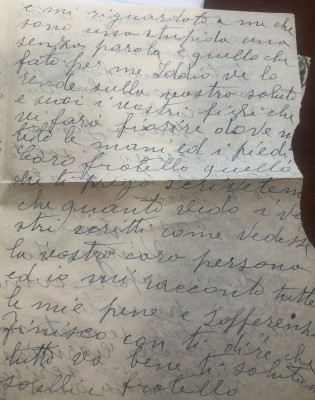 e mi riguardoti a me che
sono una stupida una
senza parola e quello che
fato per me Iddio ve lo
rende sulla vostro salute
e suoi i vostri fiori che
vi farà fiorire dove m
tite le mani ed i piedi
Caro fratello quello
che ti prego scrivetem
che quanto vedo i vo
stri scritti come vedess
la vostro caro persona
ed io mi racconto tutte
le mie pene e sofferenz
Finisco con ti dire che
tutto va bene ti saluta
sorelli e fratello